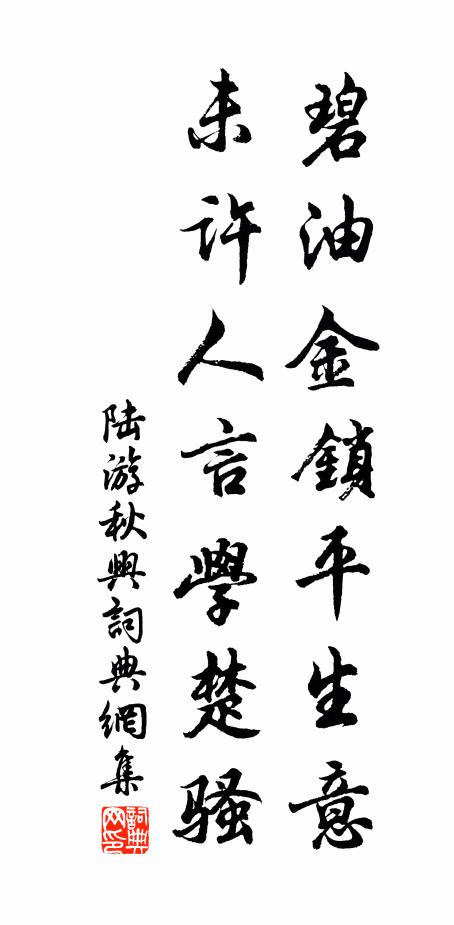 碧油金鎖平生意
未许人言學楚骚
陆游秋興詞典網集
詞典网印